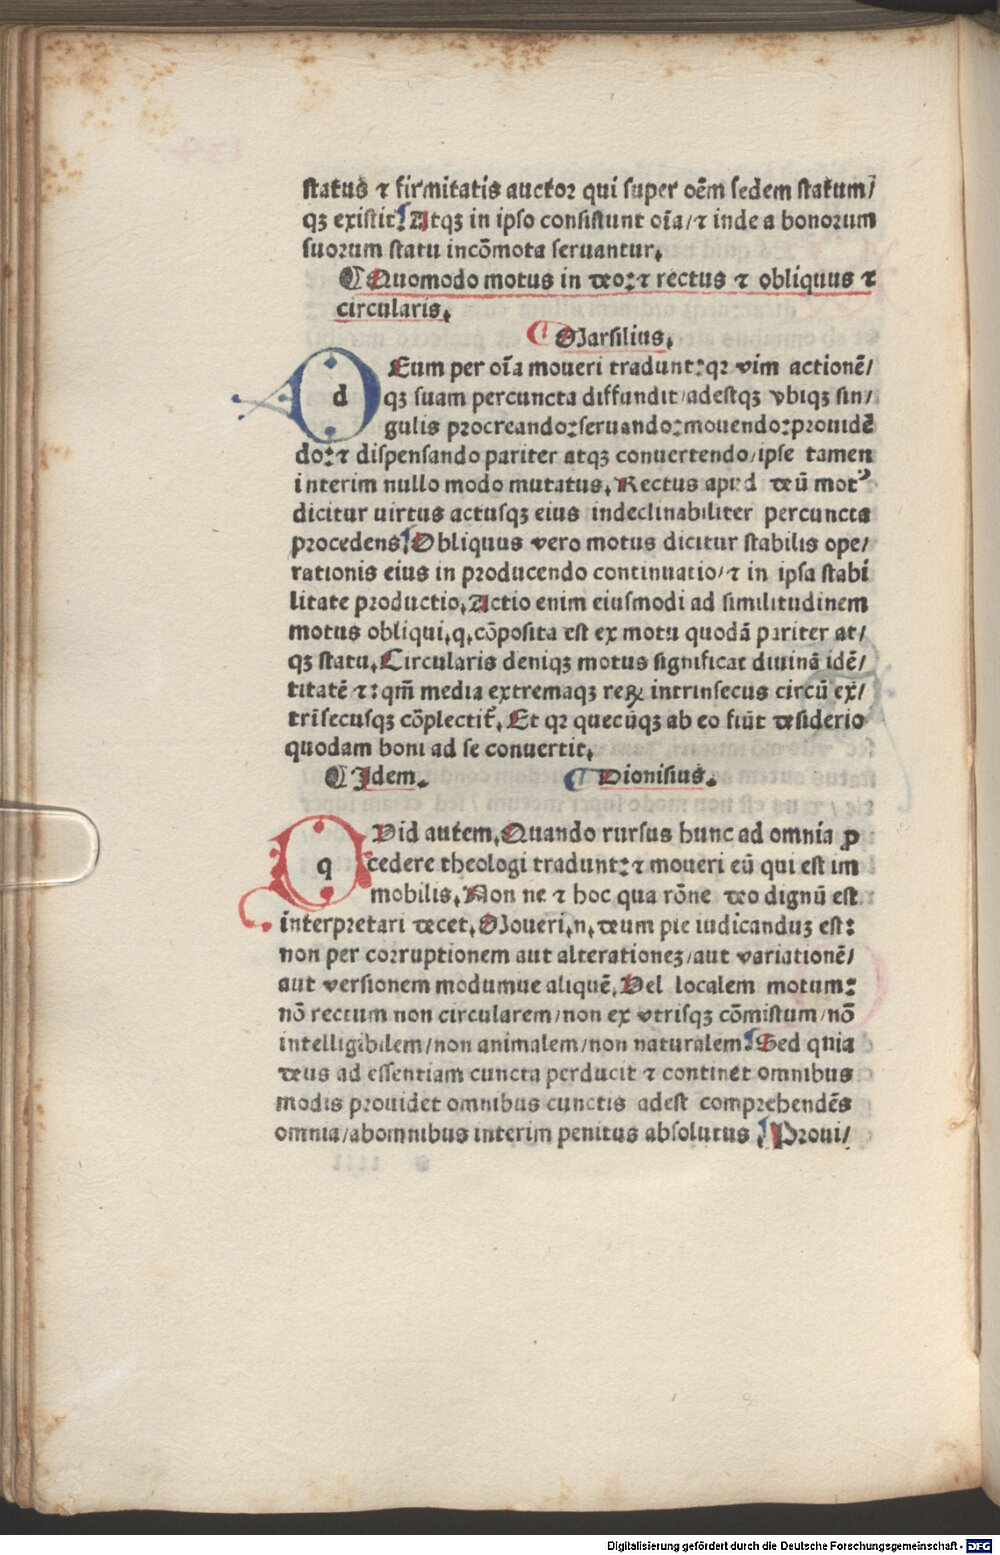 status ⁊ firmitatis auctor qui super oēm sedem statum/
qꝫ existit: Atqꝫ in ipso consistunt oīa/⁊ inde a bonorum
suorum statu incōmota seruantur.
¶ Quomodo motus in deo: ⁊ rectus ⁊ obliquus ⁊
circularis.
¶ Marsilius.
d Eum per oīa moueri tradunt: qꝛ vim actionē/
qꝫ suam percuncta diffundit/adestqꝫ vbiqꝫ sin/
gulis procreando: seruando: mouendo: prouidē
do: ⁊ dispensando pariter atqꝫ conuertendo/ipse tamen
interim nullo modo mutatus. Rectus apud deū motꝰ
dicitur uirtus actusqꝫ eius indeclinabiliter percuncta
procedens: Obliquus vero motus dicitur stabilis ope/
rationis eius in producendo continuatio/⁊ in ipsa stabi
litate productio. Actio enim eiusmodi ad similitudinem
motus obliqui.q.cōposita est ex motu quodā pariter at/
qꝫ statu. Circularis deniqꝫ motus significat diuinā idē/
titatē ⁊: qm̄ media extremaqꝫ reꝝ intrinsecus circū ex/
trisecusqꝫ cōplectit̄. Et qꝛ quecūqꝫ ab eo fiūt desiderio
quodam boni ad se conuertit.
¶ Idem. ¶ Dionisius.
q Vid autem. Quando rursus hunc ad omnia ꝓ
cedere theologi tradunt: ⁊ moueri eū qui est im
mobilis. Non ne ⁊ hoc qua rōne deo dignū est
interpretari decet. Moueri.n.deum pie iudicanduꝫ est:
non per corruptionem aut alterationeꝫ/aut variationē/
aut versionem modumue aliquē. Vel localem motum:
nō rectum non circularem/non ex vtrisqꝫ cōmistum/nō
intelligibilem/non animalem/non naturalem: Sed quia
deus ad essentiam cuncta perducit ⁊ continet omnibus
modis prouidet omnibus cunctis adest comprehendēs
omnia/abomnibus interim penitus absolutus. Proui/
Digitalisierung gefördert durch die Deutsche Forschungsgemeinschaft - DFG